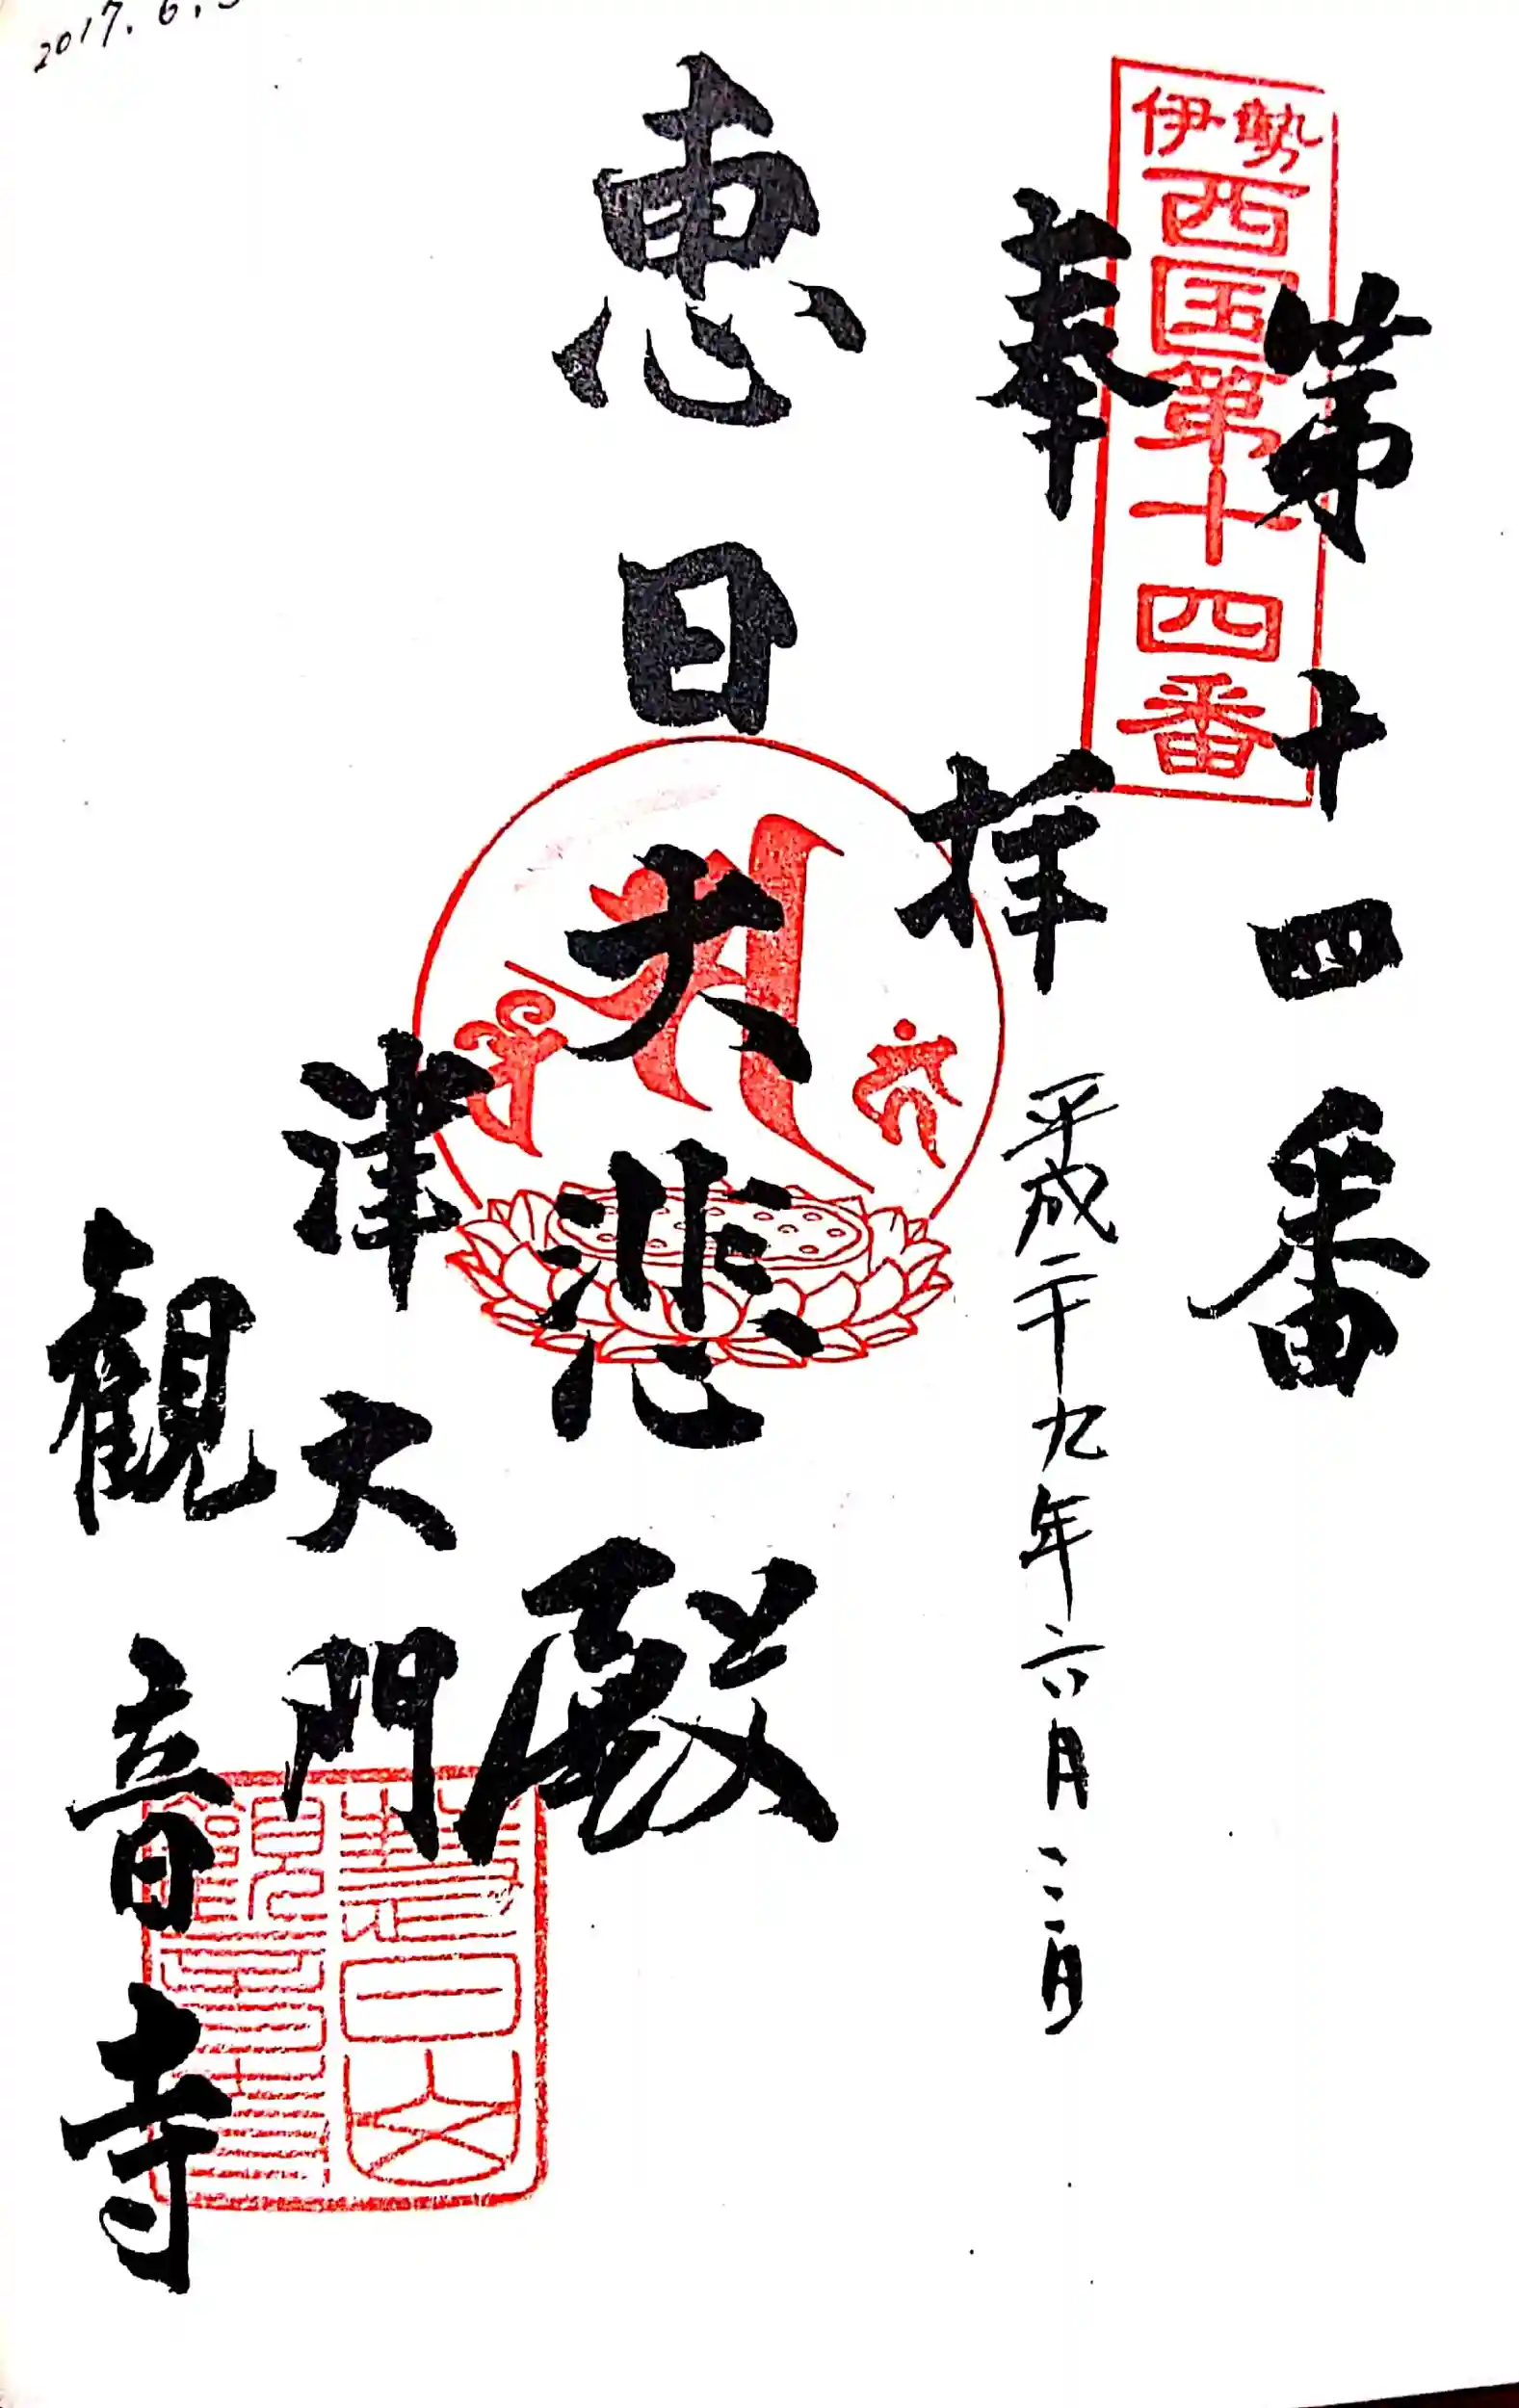 2017.6.
伊勢
西国第十四番
第十四番
奉拝
平成二十九年六月三日
恵日
大悲殿
津大門
観音寺